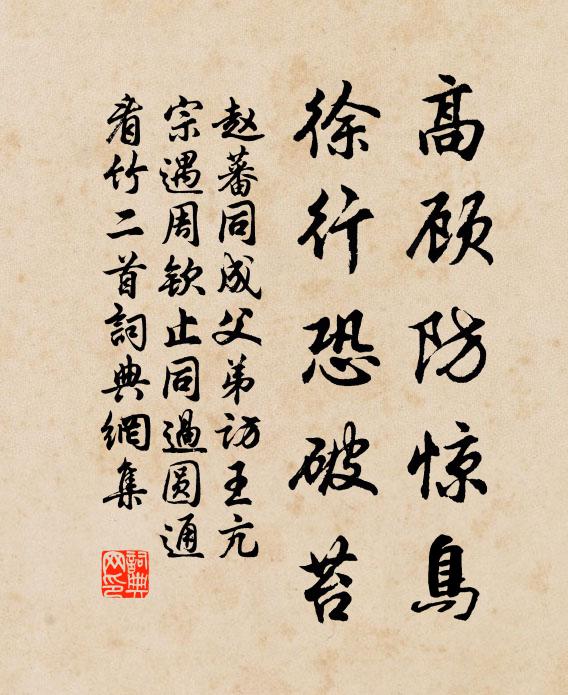 高顾防惊鳥
徐行恐破苔
赵蕃同成父弟访王亢
宗遇周钦止同過圆通
看竹二首詞典網集
詞典网印